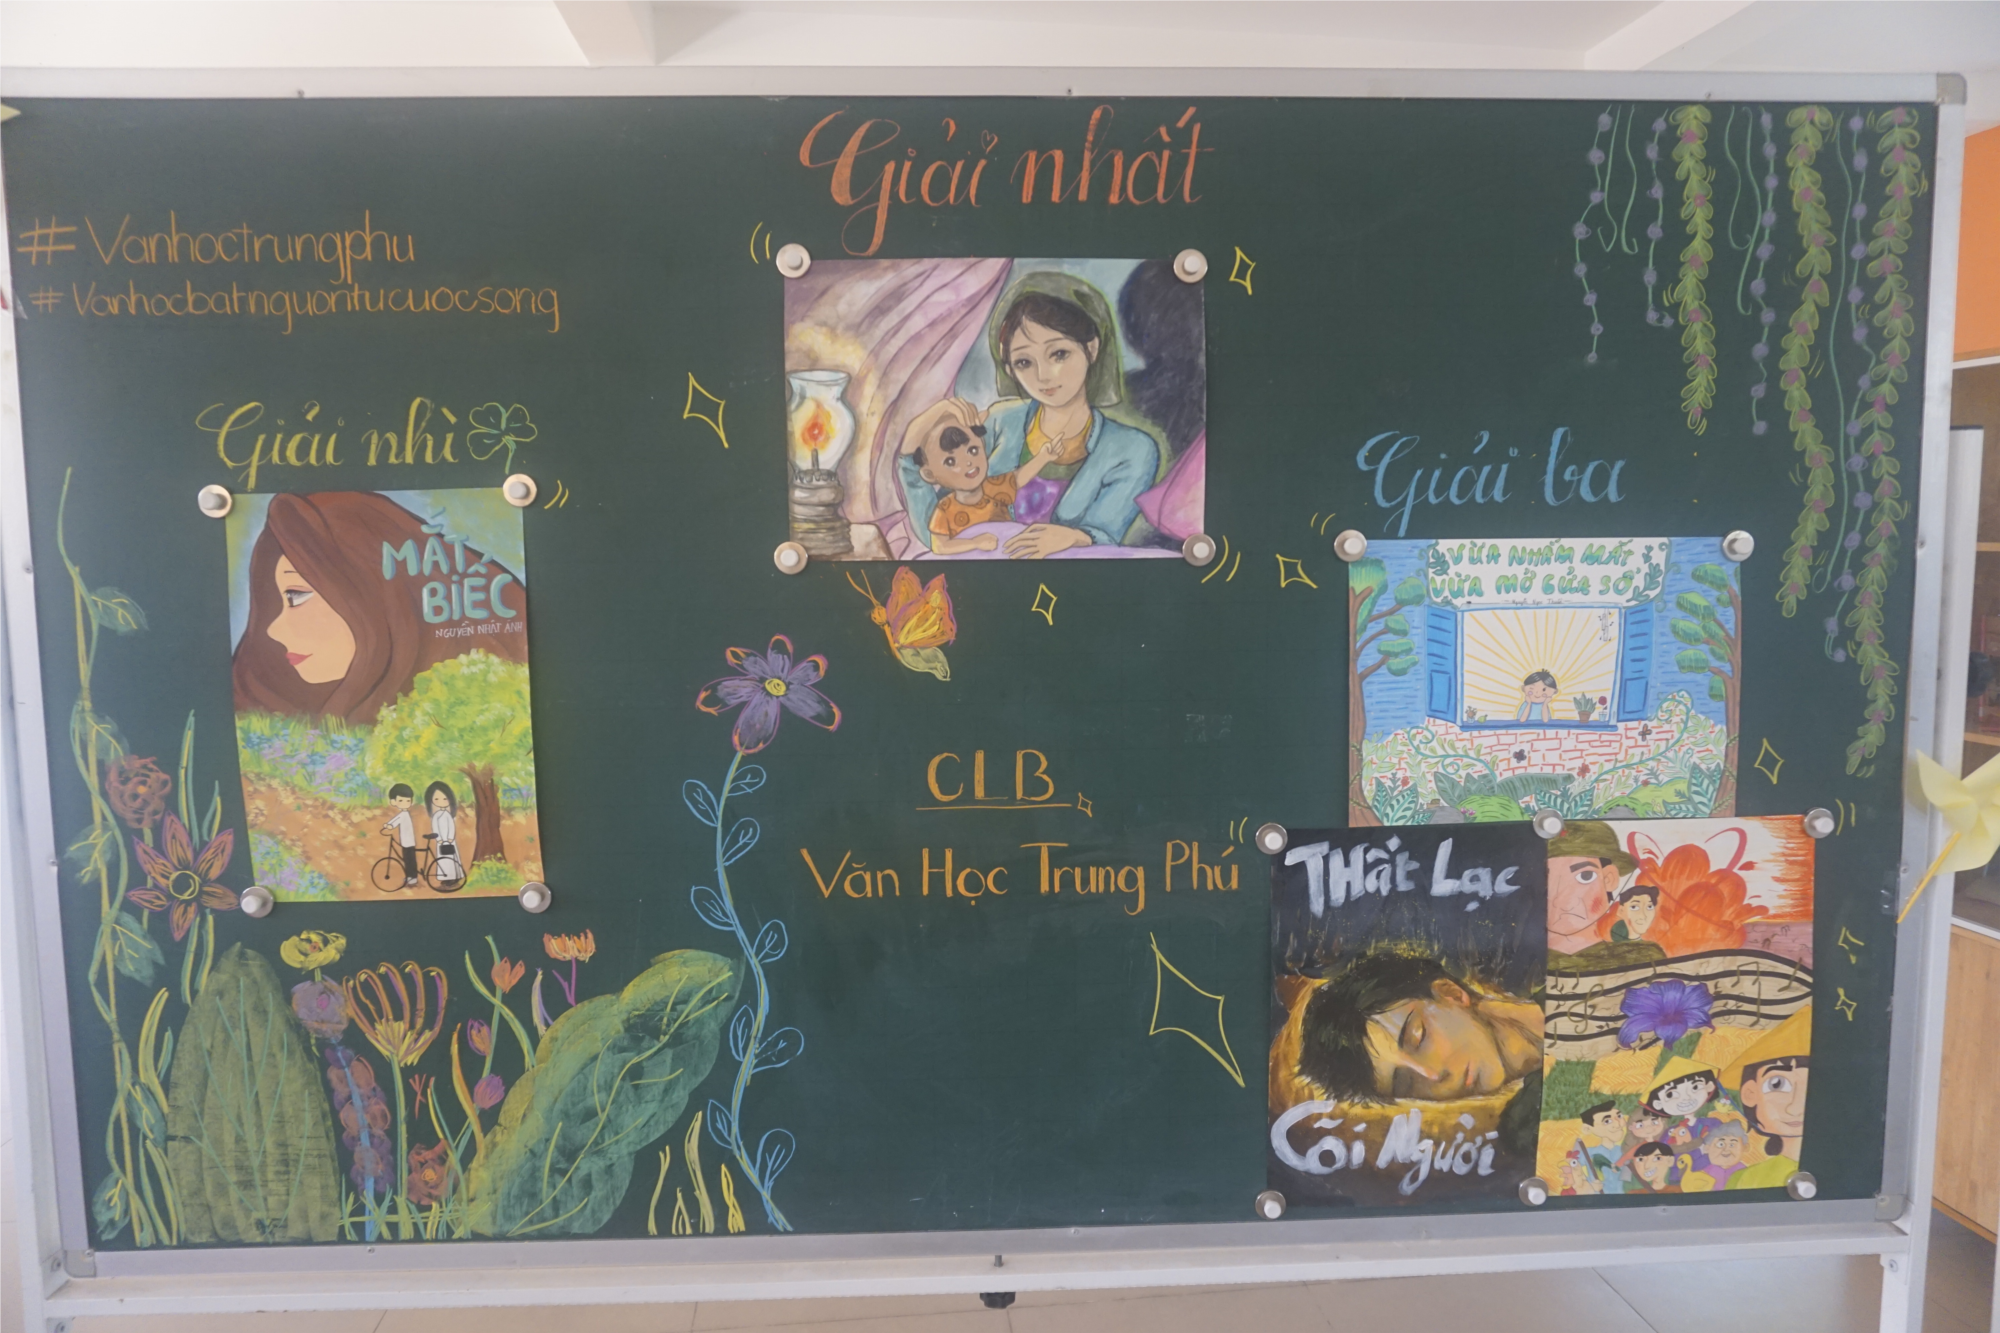 Giải nhất
#Vanhoctrungphu
#Vanhocbatnguontucuocsong
Giải nhì
MẮT
BIẾC
NGUYỄN NHẬT ÁNH
Giải ba
VỪA NHẮM MẮT
VỪA MỞ CỬA SỔ
CLB
Văn Học Trung Phú
THẤT Lạc
Cõi Người